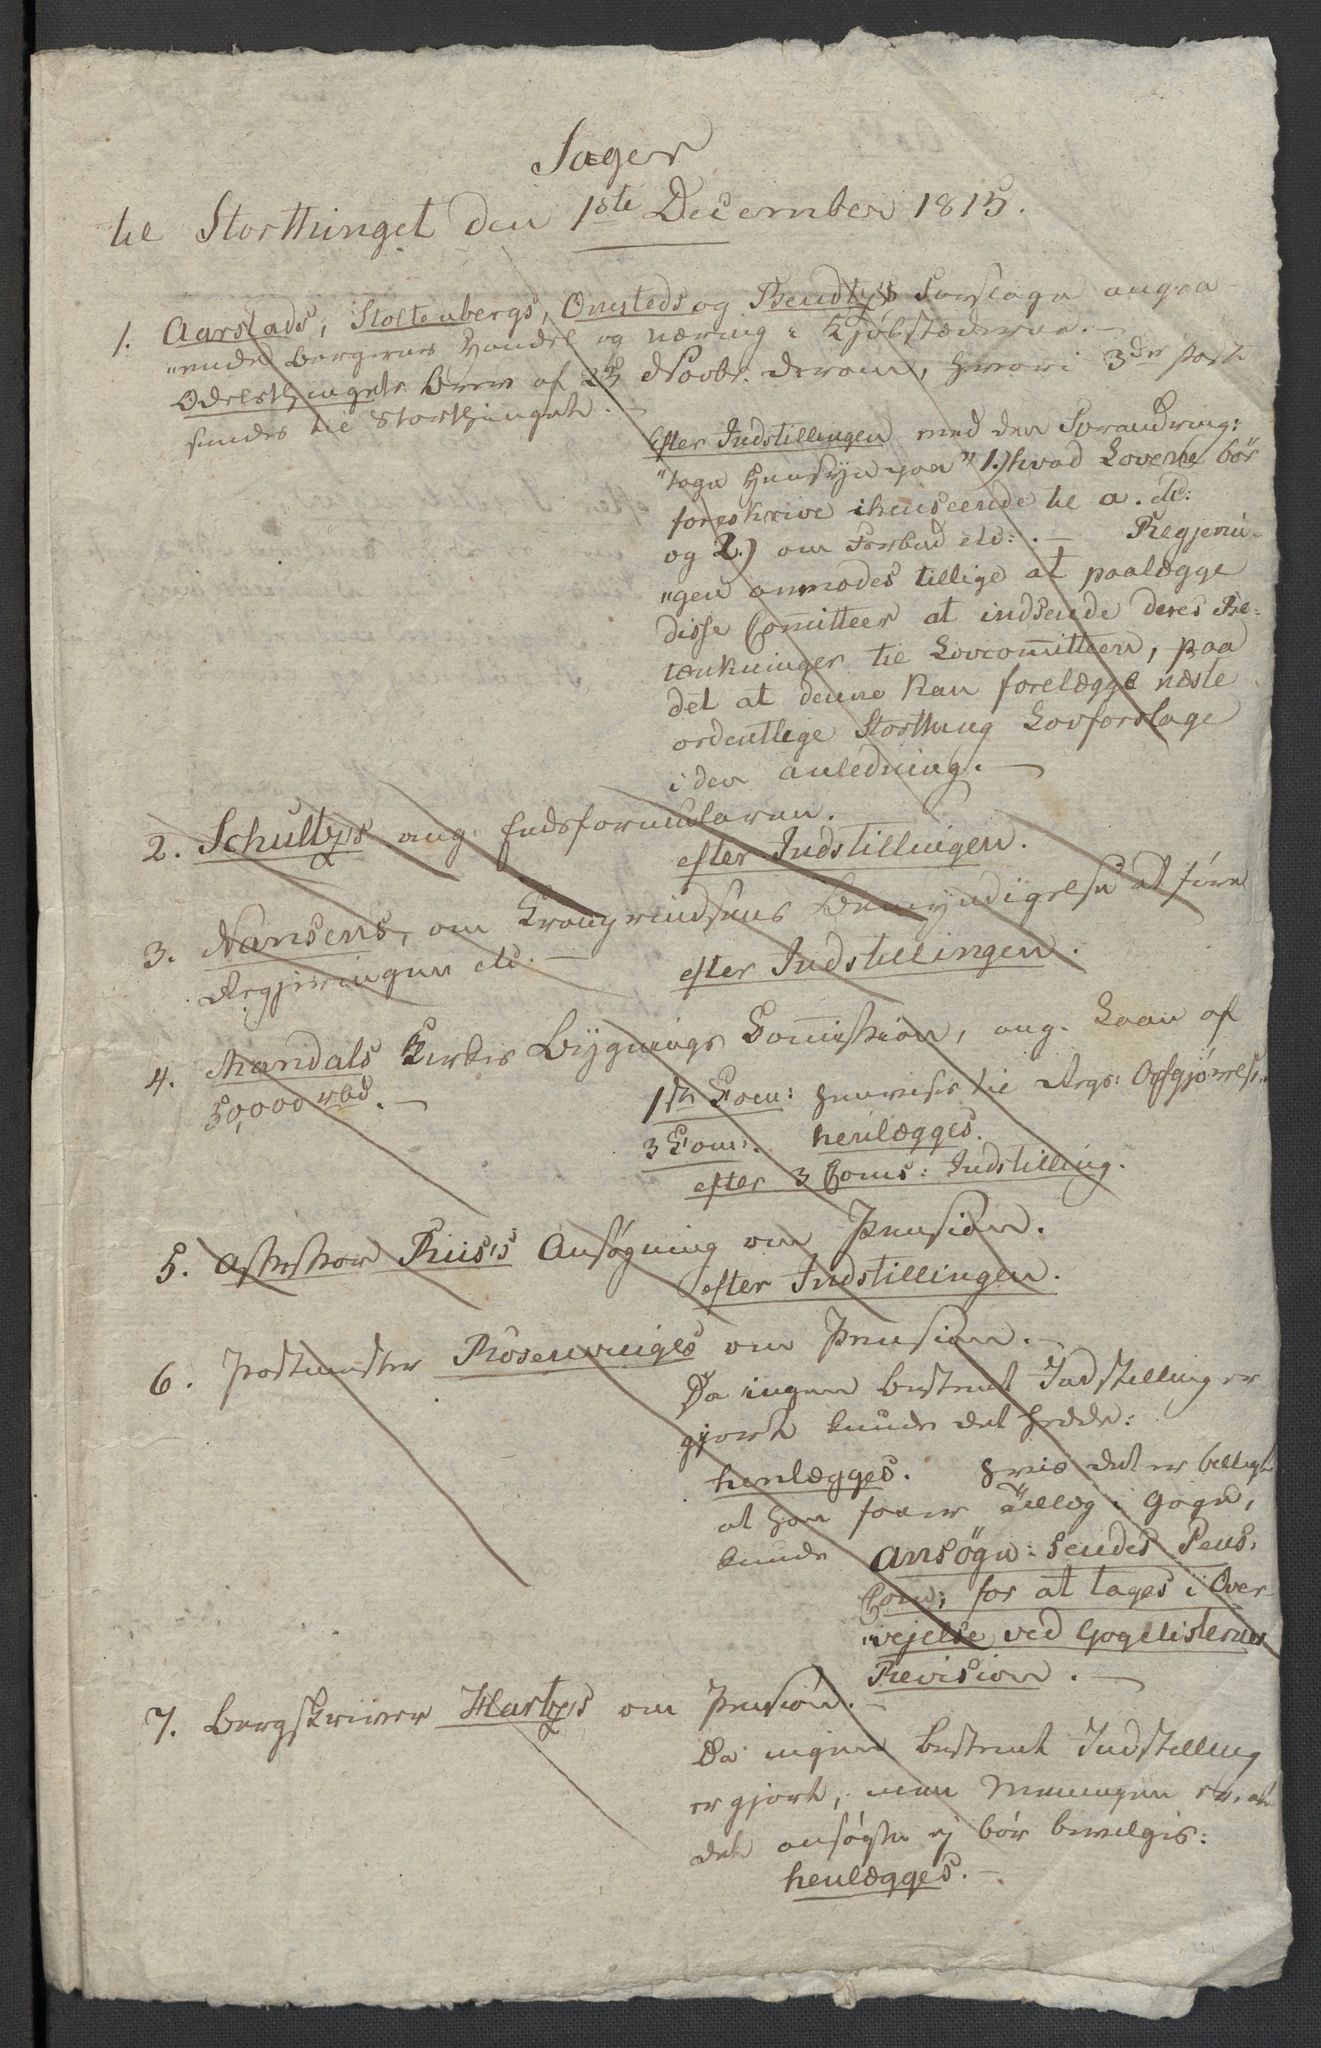 Sager
til Storthinget den 1ste December 1815.
1. Aarstads, Stoltenbergs, Omsteds og Bendtz's Forslage angaa-
"ende Borgernes Handel og Næring i Kjøbstæderne.-
Odelsthingets Brev af 23 Novbr. derom, hvori 3die Post
sendes til Storthinget.-
Efter Indstillingen med den Forandring:
"tage Hensyn paa" 1.) hvad Lovene bør
foreskrive ihenseende til a. etc:
og 2.) om Forbud etc:.- Regjerin-
"gen anmodes tillige at paalægge
disse Comitteer at indsende deres Be-
tænkninger til Lovcomitteen, paa
det at denne kan forelægge næste
ordentlige Storthing Lovforslage
i den Anledning.-
2. Schultz's ang. Eedsformularen.
efter Indstillingen.
3. Nansens, om Kronprindsens Bemyndigelse at føre
Regjeringen etc.-
efter Indstillingen.
4. Mandals Kirkes Bygnings Commission, ang. Laan af
50,000 rbd.-
1ste Com: henvises til Regs: Afgjørelse.
3 Com:. henlægges.
efter 3 Coms: Indstilling.
5. Assessor Riis's Ansøgning om Pension.
efter Indstillingen.
6. Postmester Rosenvinges om Pension.-
Da ingen bestemt Indstilling er
gjort kunde det hedde:
henlægges. hvis det er billigt
at han faaer Tillæg i Gage,
kunde Ansøgn: sendes Pens.
Com: for at tages i Over-
"vejelse ved Gagelisternes
Revision.-
7. Bergskriver Hartz's om Pension.-
Da ingen bestemt Indstilling
er gjort, men Meningen er, at
det ansøgte ej bør bevilges:
henlægges.-